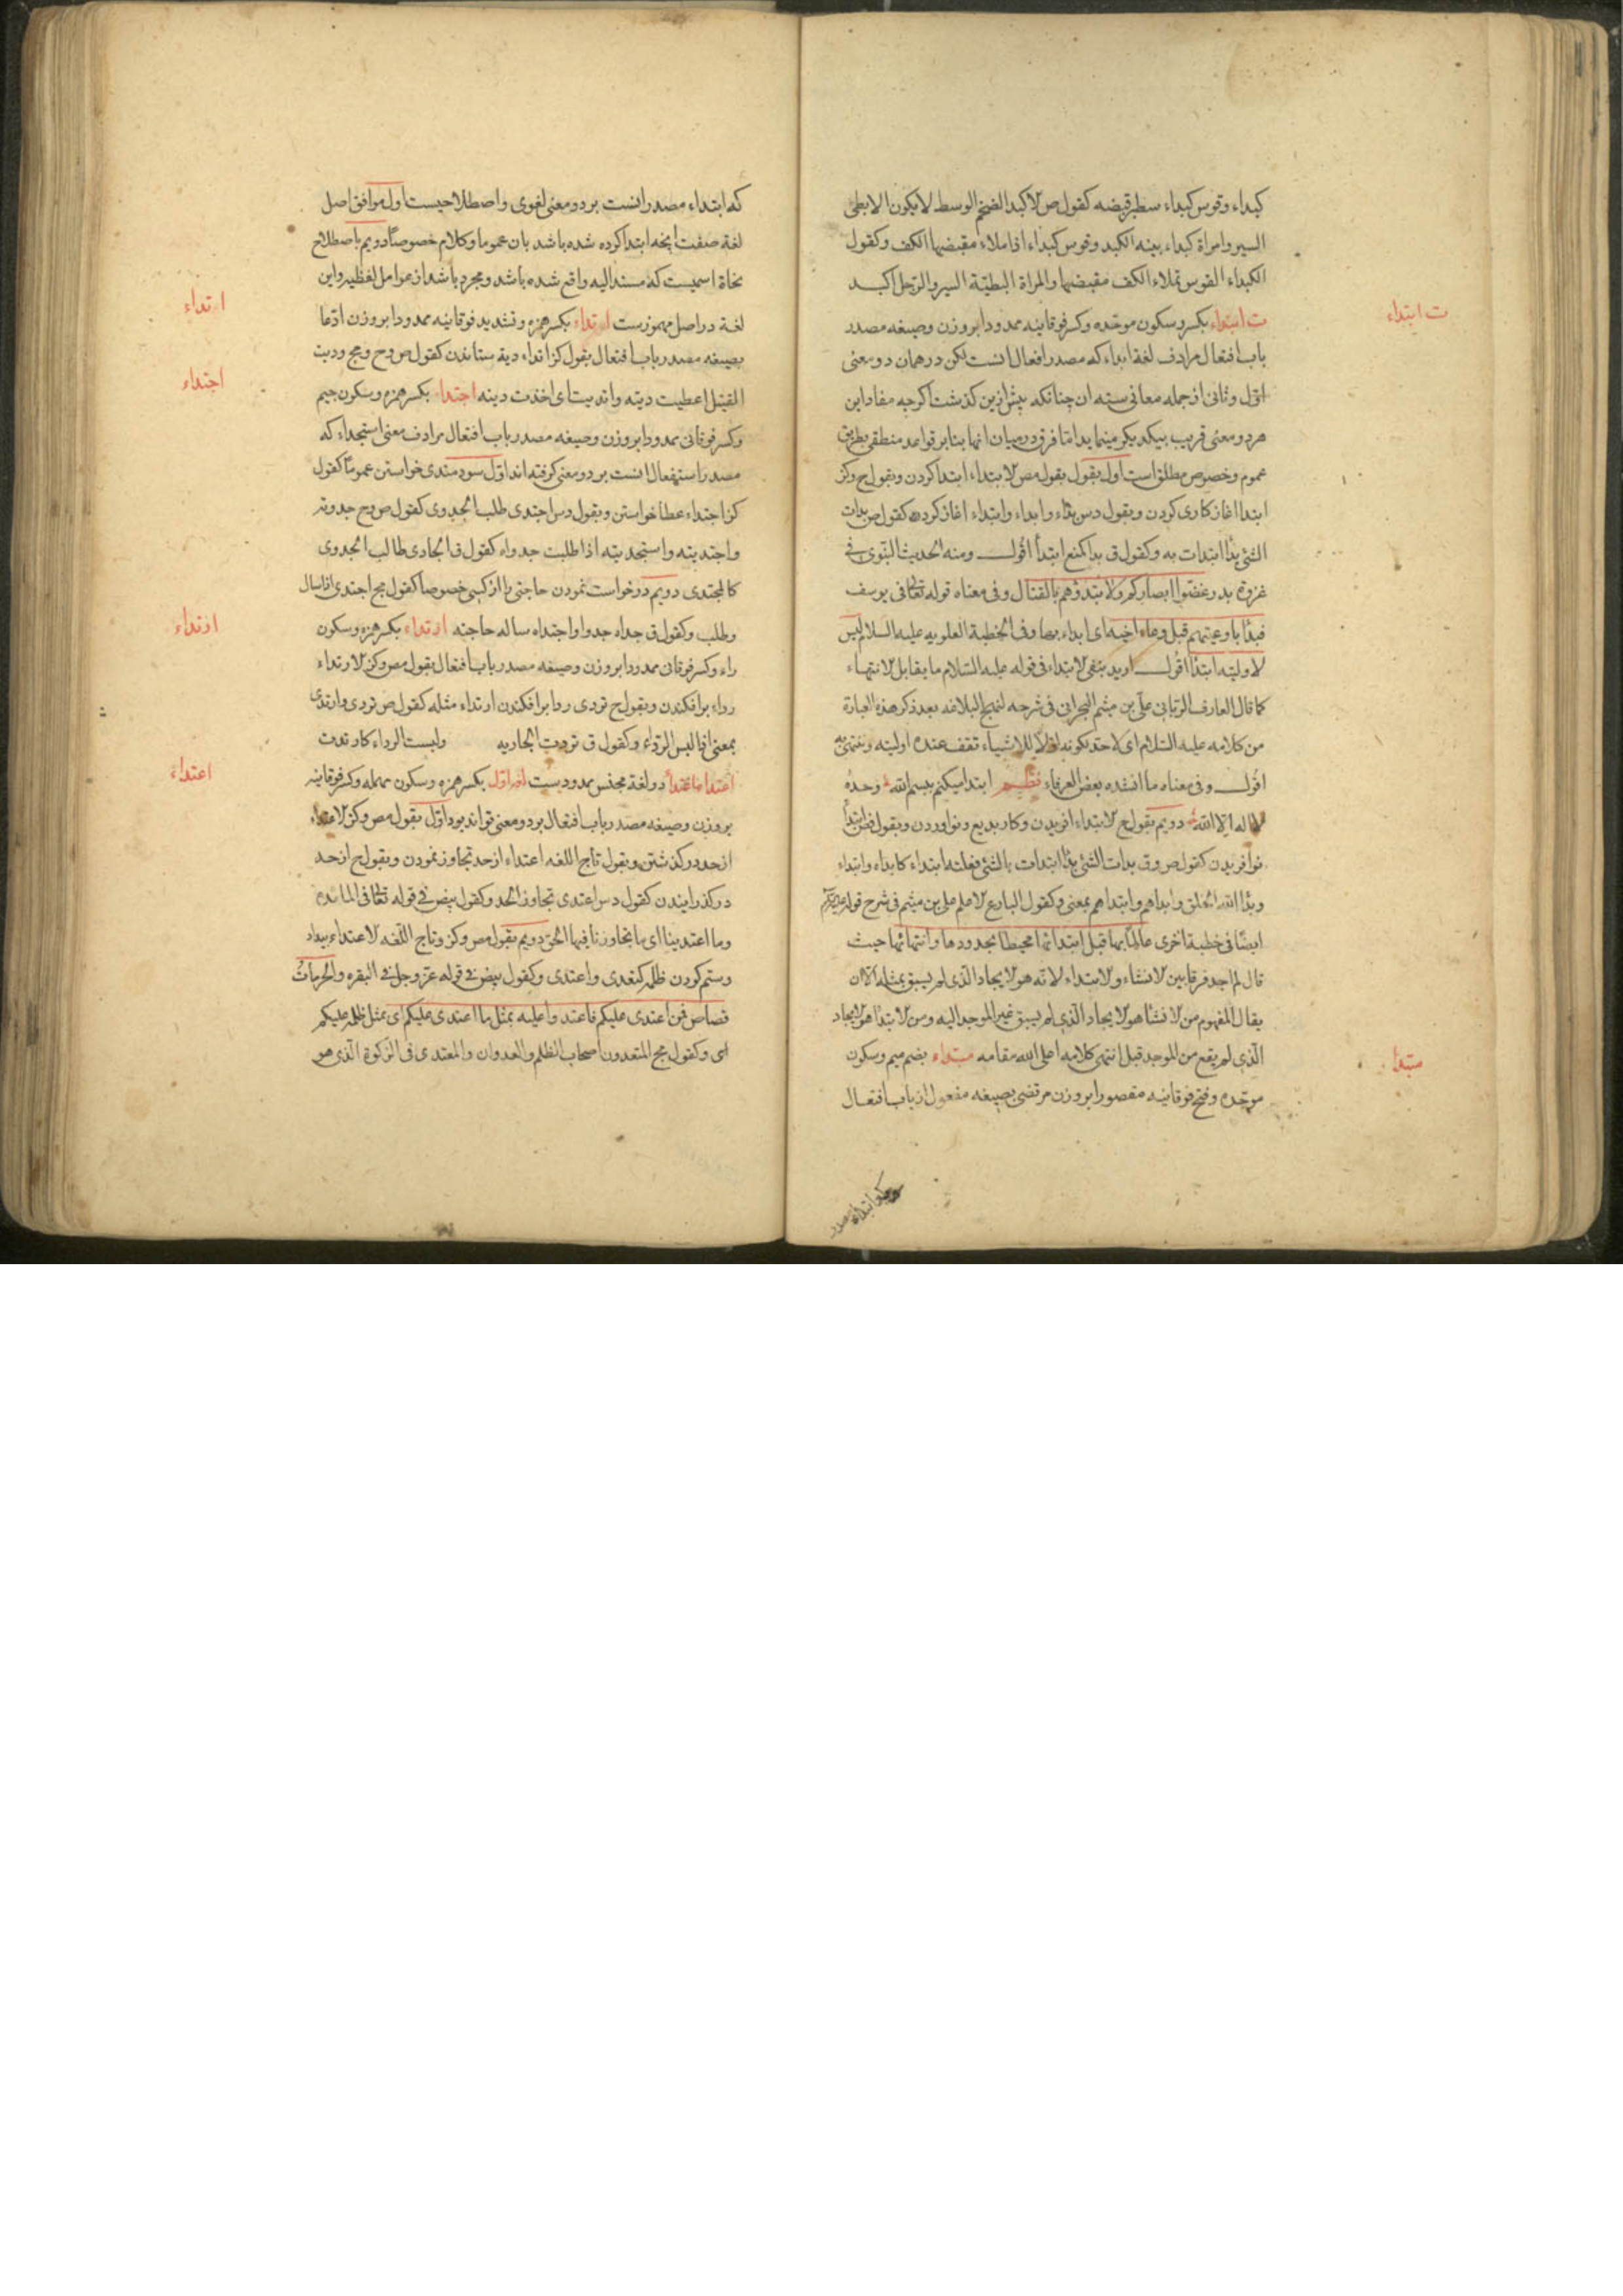 كبداء وقوس كبداء سطبر قبضه كقول ص الاكبد الضخم الوسط لا يكون الا بطئ
السير وامراة كبداء بينه الكبد وقوس كبداء اذا ملاء مقبضها الكف وكقول
الكبداء القوس تملاء الكف مقبضها والمراة البطيئة السير والرجل اكبد
ت ابتداء
ت ابتداء بكسر وسكون موحده وكسر فوقانيه ممدودا بروزن وصيغه مصدر
باب افتعال مرادف لغة ابداء كه مصدر افعال انست لكن در همان دو معنى
اول وثانى از جمله معانى سته ان چنانكه پيش ازين كذشت اكرچه مفاد اين
هر دو معنى قريب بيكديكر مينمايد اما فرق در ميان انها بنابر قواعد منطقى بطريق
عموم وخصوص مطلق است اول بقول بقول مص الابتداء ابتدا كردن وبقول ح وكز
ابتدا اغاز كارى كردن وبقول دس بداء وابداء وابتداء اغاز كردن كقول ص بدات
الشئ بدأ ابتدات به وكقول ق بدا كمنع ابتدأ اقول ومنه الحديث النبوى فى
غزوة بدر غضوا ابصاركم ولا تبتدؤهم بالقتال وفى معناه قوله تعالى فى يوسف
فبدأ باوعيتهم قبل وعاء اخيه اى ابداء بها وفى الخطبة العلويه عليه السلام ليس
لاوليته ابتدأ اقول اريد بنفى الابتداء فى قوله عليه السلام ما يقابل الانتهاء
كما قال العارف الربانى على بن ميثم البحرانى فى شرحه لنهج البلاغه بعد ذكر هذه العبارة
من كلامه عليه السلام اى لا حد لكونه اولا للاشياء تقف عنده اوليته وتنتهى به
اقول وفى معناه ما انشده بعض العرفاء نظم ابتدا ميكنم ببسم الله وحده
لا اله الا الله دويم بقول ح الابتداء افريدن وكار بديع ونو اوردن وبقول
نو افريدن كقول ص وق بدات الشئ بدأ ابتدات بالشئ فعلته ابتداء كابداء وابتداء
وبدا الله الخلق وابداهم وابتداهم بمعنى وكقول البارع الاعلم على بن ميثم فى شرح قوله
ايضا فى خطبة اخرى عالما بها قبل ابتدائها محيطا بحدودها وانتهائها حيث
قال لم اجد فرقا بين الانشاء والابتداء لانه هو الايجاد الذى لم يسبق بمثله الا ان
يقال المفهوم من الانشا هو الايجاد الذى لم يسبق غير الموجد اليه ومن الابتدا هو الايجاد
الذى لم يقع من الموجد قبل انتهى كلامه اعلى الله مقامه مبتداء بضم ميم وسكون
مبتدأ
موحده وفتح فوقانيه مقصورا بروزن مرتضى بصيغه مفعول از باب افتعال
كه ابتداء مصدر انست بر دو معنى لغوى واصطلاحيست اول موافق اصل
لغة صفت انچه ابتدا كرده شده باشد بان عموما وكلام خصوصا دويم باصطلاح
نحاة اسميست كه مسند اليه واقع شده باشد ومجرد باشد از عوامل لفظيه واين
ارتداء
لغة در اصل مهموزست اتداء بكسر همزه وتشديد فوقانيه ممدودا بروزن ادعا
بصيغه مصدر باب افتعال بقول كز اتداء ديه ستاندن كقول ص وح ومج وديت
اجتداء
القتيل اعطيت ديته واتديت اى اخذت ديته اجتداء بكسر همزه وسكون جيم
وكسر فوقانى ممدودا بروزن وصيغه مصدر باب افتعال مرادف معنى استجداء كه
مصدر استفعال انست بر دو معنى كرفته اند اول سودمندى خواستن عموما كقول
كز اجتداء عطا خواستن وبقول دس اجتدى طلب الجدوى كقول ص وح جدوته
واجتديته واستجديته اذا طلبت جدواه كقول ق الجادى طالب الجدوى
كالمجتدى دويم درخواست نمودن حاجتى را از كسى خصوصا كقول مج اجتدى اذا سال
ارتداء
وطلب وكقول ق جداه جدوا واجتداه ساله حاجته ارتداء بكسر همزه وسكون
راء وكسر فوقانى ممدودا بروزن وصيغه مصدر باب افتعال بقول مص وكز الارتداء
رداء برافكندن وبقول ح تردى ردا برافكندن ارتداء مثله كقول ص تردى وارتدى
بمعنى اذا لبس الرداء وكقول ق تردت الجاريه ولبست الرداء كارتدت
اعتداء
دو لغة مجنس ممدودست اما اول بكسر همزه وسكون مهمله وكسر فوقانيه
بروزن وصيغه مصدر باب افتعال بر دو معنى تواند بود اول بقول مص وكز الاعتداء
از حد در كذشتن وبقول تاج اللغه اعتداء از حد تجاوز نمودن وبقول ح از حد
در كذرانيدن كقول دس اعتدى تجاوز الحد وكقول بيض فى قوله تعالى فى المائده
وما اعتدينا اى ما تجاوزنا فيها الحق دويم بقول مص وكز وتاج اللغه الاعتداء بيداد
وستم كردن ظلم كتعدى واعتدى وكقول بيض فى قوله عز وجل فى البقره والحرمات
قصاص فمن اعتدى عليكم فاعتدوا عليه بمثل ما اعتدى عليكم اى بمثل ظلمه عليكم
اى وكقول مج المتعدون اصحاب الظلم والعدوان والمعتدى فى الزكوة الذى هو